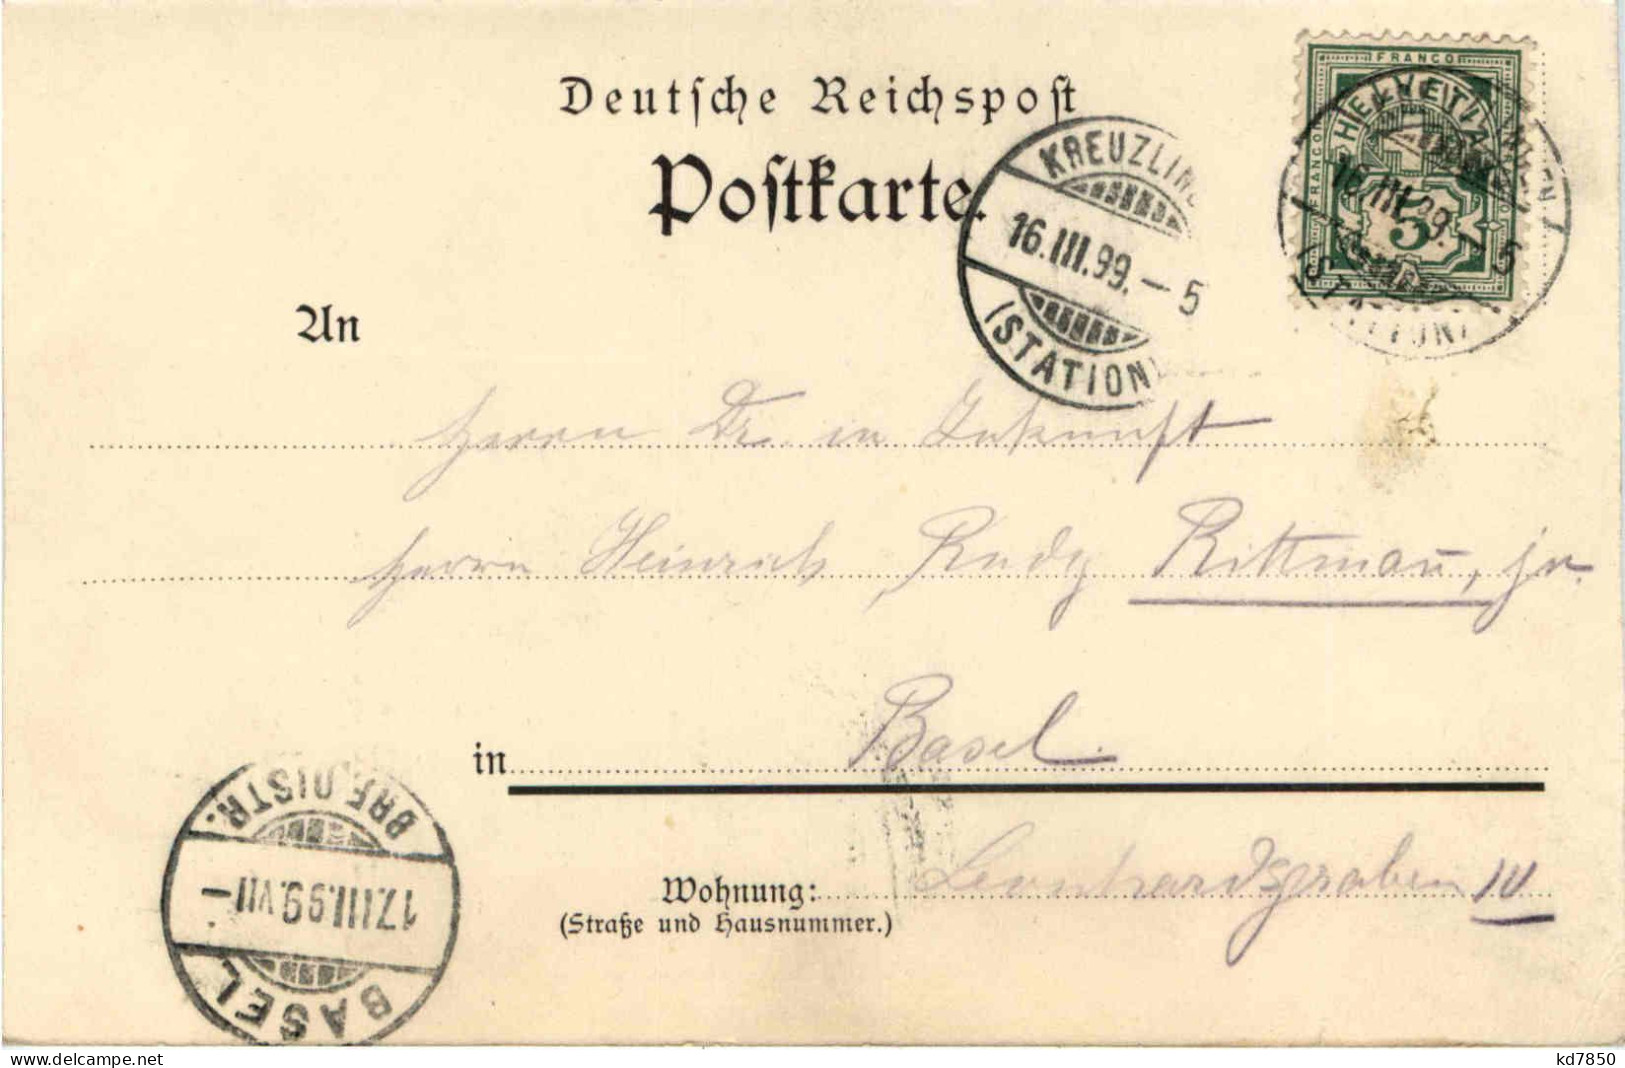 Deutsche Reichspost
Postkarte.
FRANCO
FRANCO
HELVETIA
5
KREUZLING
16.III.99.–5
(STATION)
16.III.99.–5
(STATION)
An
Herrn Dr. in Zukunft
Herrn Heinrich Rudg Rittmann, jr.
in Basel.
Wohnung: Leonhardsgraben
(Straße und Hausnummer.)
BRF.DISTR.
17.III.99.VII–
BASEL
www.delcampe.net
kd7850